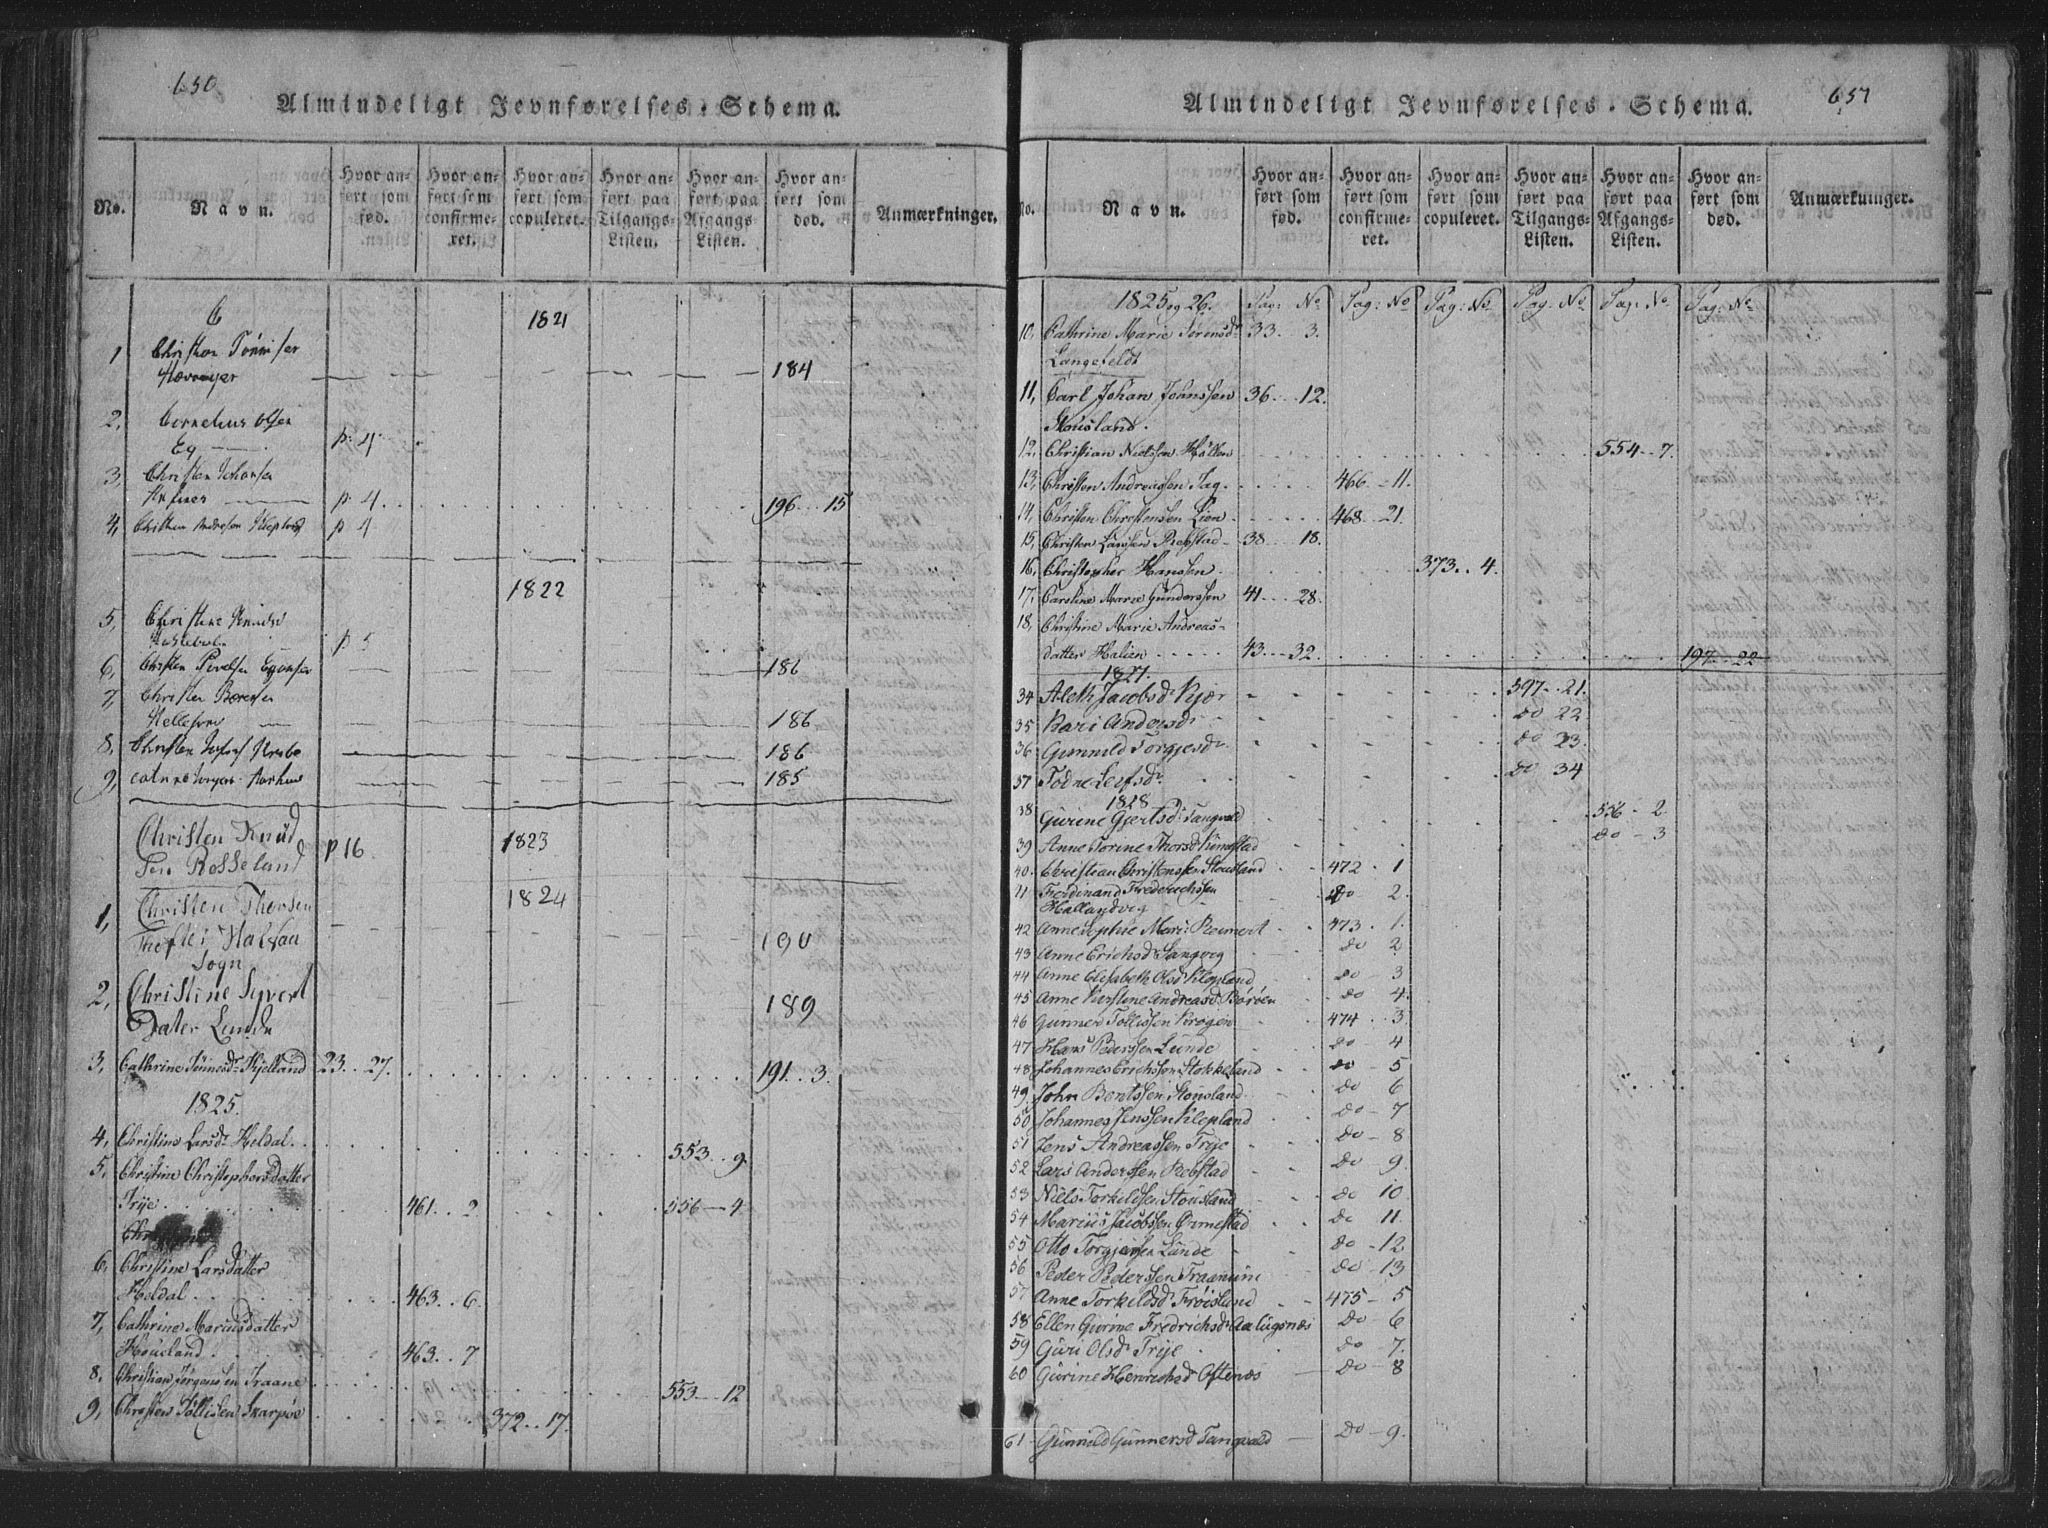 650
Almindeligt Jevnførelses-Schema.
No.
Navn.
Hvor anført som fød.
Hvor anført som confirmeret.
Hvor anført som copuleret.
Hvor anført paa Tilgangs-Listen.
Hvor anført paa Afgangs Listen.
Hvor anført som død.
Anmærkninger.
C 1821
1 Christen Tønnisen
184
2. Cornelius Olsen
Eg p. 4
3, Christen Johansen
p 4 196 15
4, Christen Andresen p 4
1822
5, Christine
p 5
6, Christen 186
7, Christen
186
8, Christen 186
9, 185
Christen Knud p 16 1823
Sen Rosseland
1824
1, Christen Thorsen
Halsaa 190
Sogn
2, Christine Syvert
Dater Lunde 189
3, Cathrine Tønnesdr Kjelland 23 27. 191 3.
1825.
4, Christine Larsdr Heldal 553 9
5, Christine Christophersdatter
Trye 461 2 556 4
6, Christine Larsdatter
Heldal 463 6
7, Cathrine Mariusdatter
463 7
8. Christian Jørgensen Traane 553 12
9, Christen Tollisen Skarpøe 372 17.
651
Almindeligt Jevnførelses-Schema.
No.
Navn.
Hvor anført som fød.
Hvor anført som confirmeret.
Hvor anført som copuleret.
Hvor anført paa Tilgangs-Listen.
Hvor anført paa Afgangs-Listen.
Hvor anført som død.
Anmærkninger.
1825 og 26. Pag: No Pag: No Pag: No Pag: No Pag: No Pag: No
10, Cathrine Marie Sørensdr 33 3.
Langefeldt
11, Carl Johan Joanssen 36 12.
Stousland.
12. Christian Nielsen 554 7.
13, Christen Andreassen 466 11.
14, Christen Christensen Lien 468 21.
15, Christen Larssen Rebstad 38 18.
16, Christopher Hanssen 373 4.
17, Caroline Marie Gunderssen 41 28.
18, Christine Marie Andreas-
datter Halien 43 32. 197 22
1827.
34 Aleth Jacobsdr Kjær 597 21.
35 Kari Andersdr do 22
36 Gunnild Torgjesdr do 23.
37 Todne Leifsdr do 34
1828
38 Gurine Gjertsdr Tangvald 556 2.
39 Anne Torine Thorsd Rimestad do 3
40. Christian Christenssen Stousland 472 1
41 Ferdinand Frederichssen do 2.
Hallandvig
42 Anne Sophie Marie Reinert 473 1.
43 Anne Erichsd Langvig do 2
44 Anne Elisabeth Olsd Klepland do 3
45 Anne Kirstine Andreasd Borøen do 4.
46 Gunner Tollissen Krogen 474 3.
47 Hans Pederssen Lunde do 4
48 Johannes Erichssen Stokkeland do 5
49. John Bentssen Stousland do 6
50 Johannes Jenssen Klepland do 7
51 Jens Andreassen Trye do 8
52 Lars Anderssen Rebstad do 9
53 Niels Torkildsen Stousland do 10
54 Marius Jacobssen Ormestad do 11.
55 Otto Torgjersen Lunde do 12
56 Peder Pederssen Traanum do 13
57 Anne Torkildsd Frøisland 475 5
58 Ellen Gurine Fredrichsd Aalugsnæs do 6
59 Guri Olsd Trye do 7.
60 Gurine Henrichsd Oftenæs do 8
61 Gunnild Gunnersd Tangvald do 9.